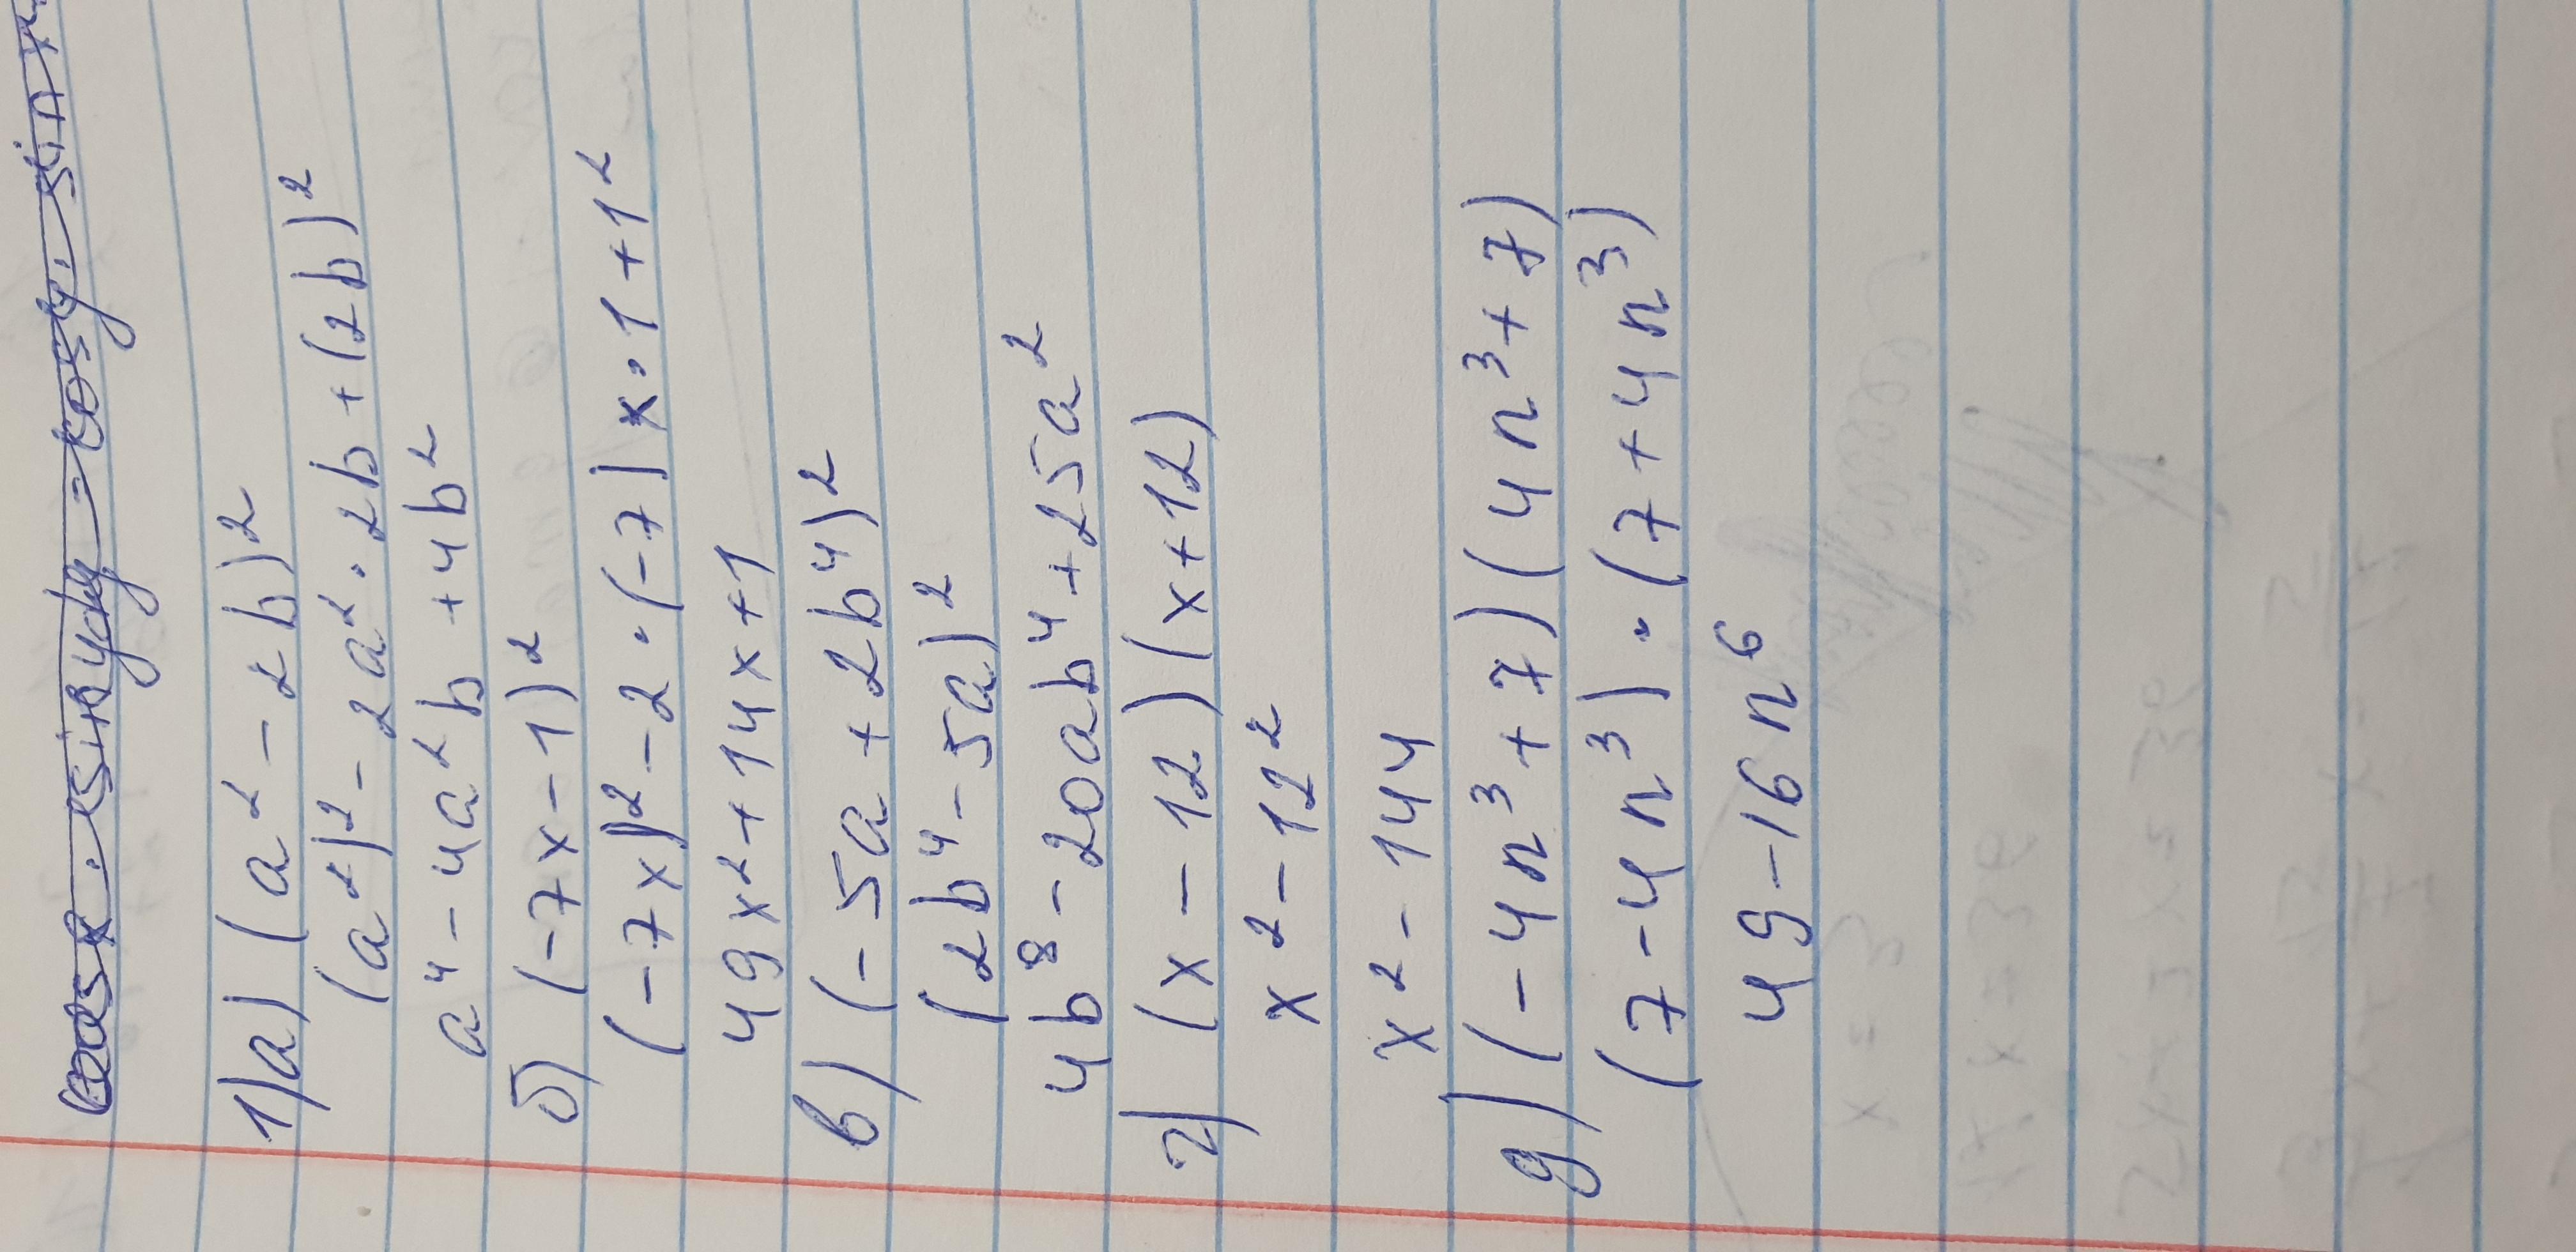 cos x · sin y dy = cos y · sin x
1) а) (a² - 2b)²
(a²)² - 2a² · 2b + (2b)²
a⁴ - 4a²b + 4b²
б) (-7x - 1)²
(-7x)² - 2 · (-7)x · 1 + 1²
49x² + 14x + 1
в) (-5a + 2b⁴)²
(2b⁴ - 5a)²
4b⁸ - 20ab⁴ + 25a²
г) (x - 12)(x + 12)
x² - 12²
x² - 144
д) (-4n³ + 7)(4n³ + 7)
(7 - 4n³) · (7 + 4n³)
49 - 16n⁶